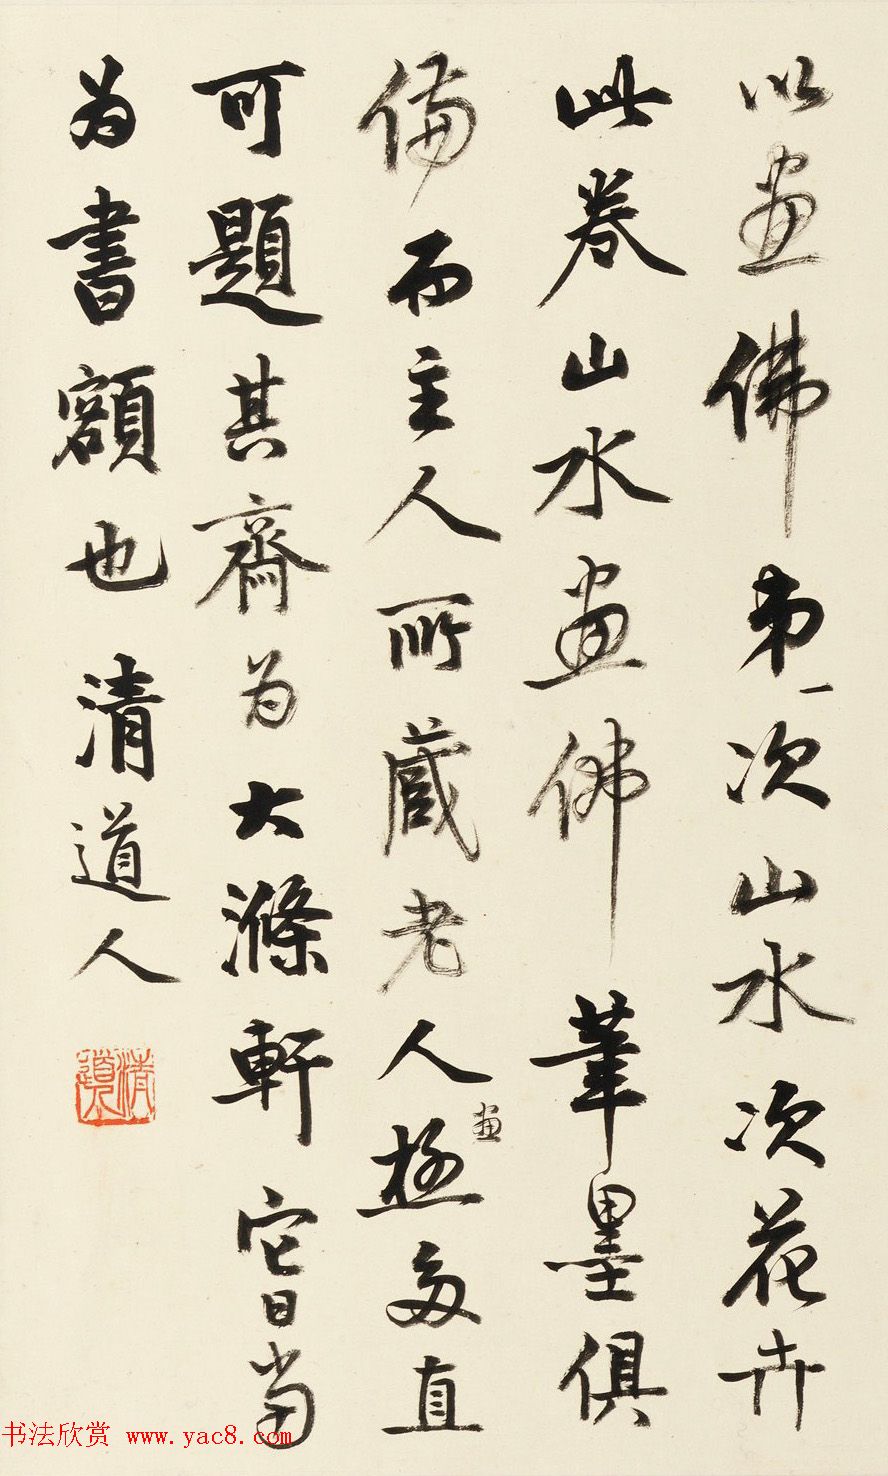 以畫佛第一次山水次花卉
此卷山水畫佛筆墨俱
備而主人所藏老人畫極多直
可題其齋為大滌軒它日當
为書額也 清道人
清道人
书法欣赏 www.yac8.com